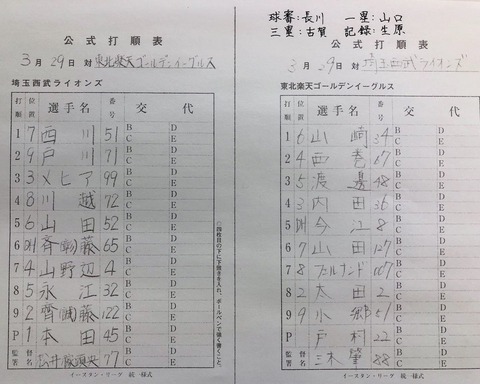 公式打順表
3月29日 対 東北楽天ゴールデンイーグルス
埼玉西武ライオンズ
打順 位置 選手名 番号 交代
1 7 西川 51 B C D E
2 9 戸川 71 B C D E
3 3 メヒア 99 B C D E
4 8 川越 72 B C D E
5 6 山田 52 B C D E
6 DH 斉(彰)藤 65 B C D E
7 4 山野辺 4 B C D E
8 5 永江 32 B C D E
9 2 齊(誠)藤 122 B C D E
P 1 本田 45 B C D E
監督 督名 松井 77 B C D E
○四枚目の下に下敷きを入れ、ボールペンで強く書くこと。
イースタン・リーグ 統一様式
球審:長川 一塁:山口
三塁:古賀 記録:生原
公式打順表
3月29日 対 埼玉西武ライオンズ
東北楽天ゴールデンイーグルス
打順 位置 選手名 番号 交代
1 6 山崎 34 B C D E
2 4 西巻 67 B C D E
3 5 渡邊 48 B C D E
4 3 内田 36 B C D E
5 DH 今江 8 B C D E
6 7 山田 127 B C D E
7 8 フェルナンド 007 B C D E
8 2 太田 2 B C D E
9 9 小郷 51 B C D E
P 戸村 22 B C D E
監督 督名 三木 肇 88 B C D E
イースタン・リーグ 統一様式